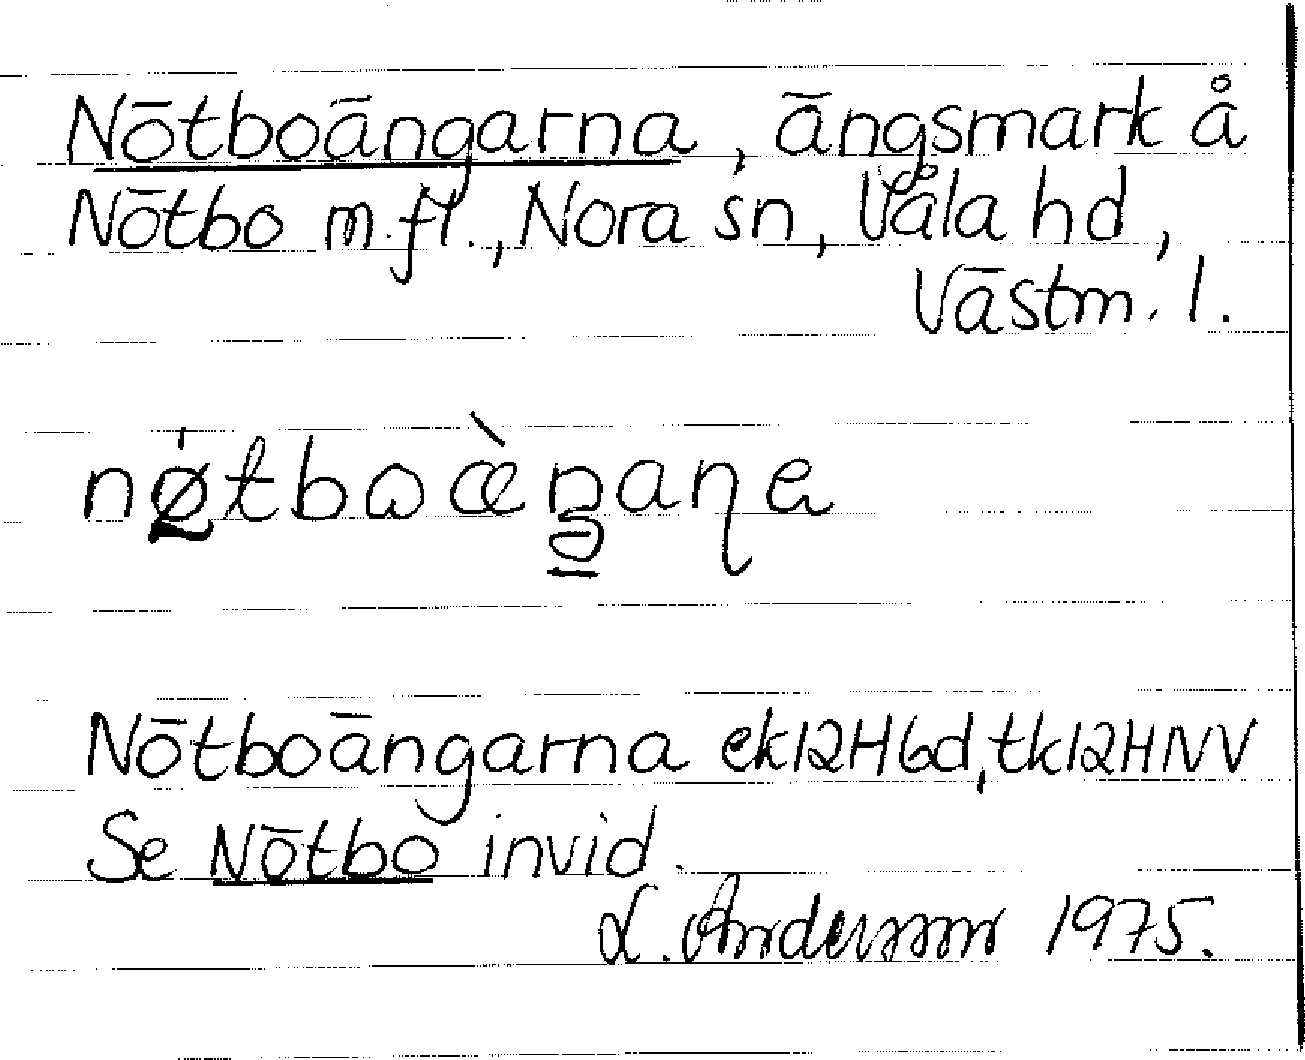 Nötboängarna, ängsmark å
Nötbo m.fl., Nora sn, Våla hd,
Västm. l.
nø̀tboæ̀ŋaɳa
Nötboängarna ek12H6d, tk12HNV
Se Nötbo invid.
L. Andersson 1975.